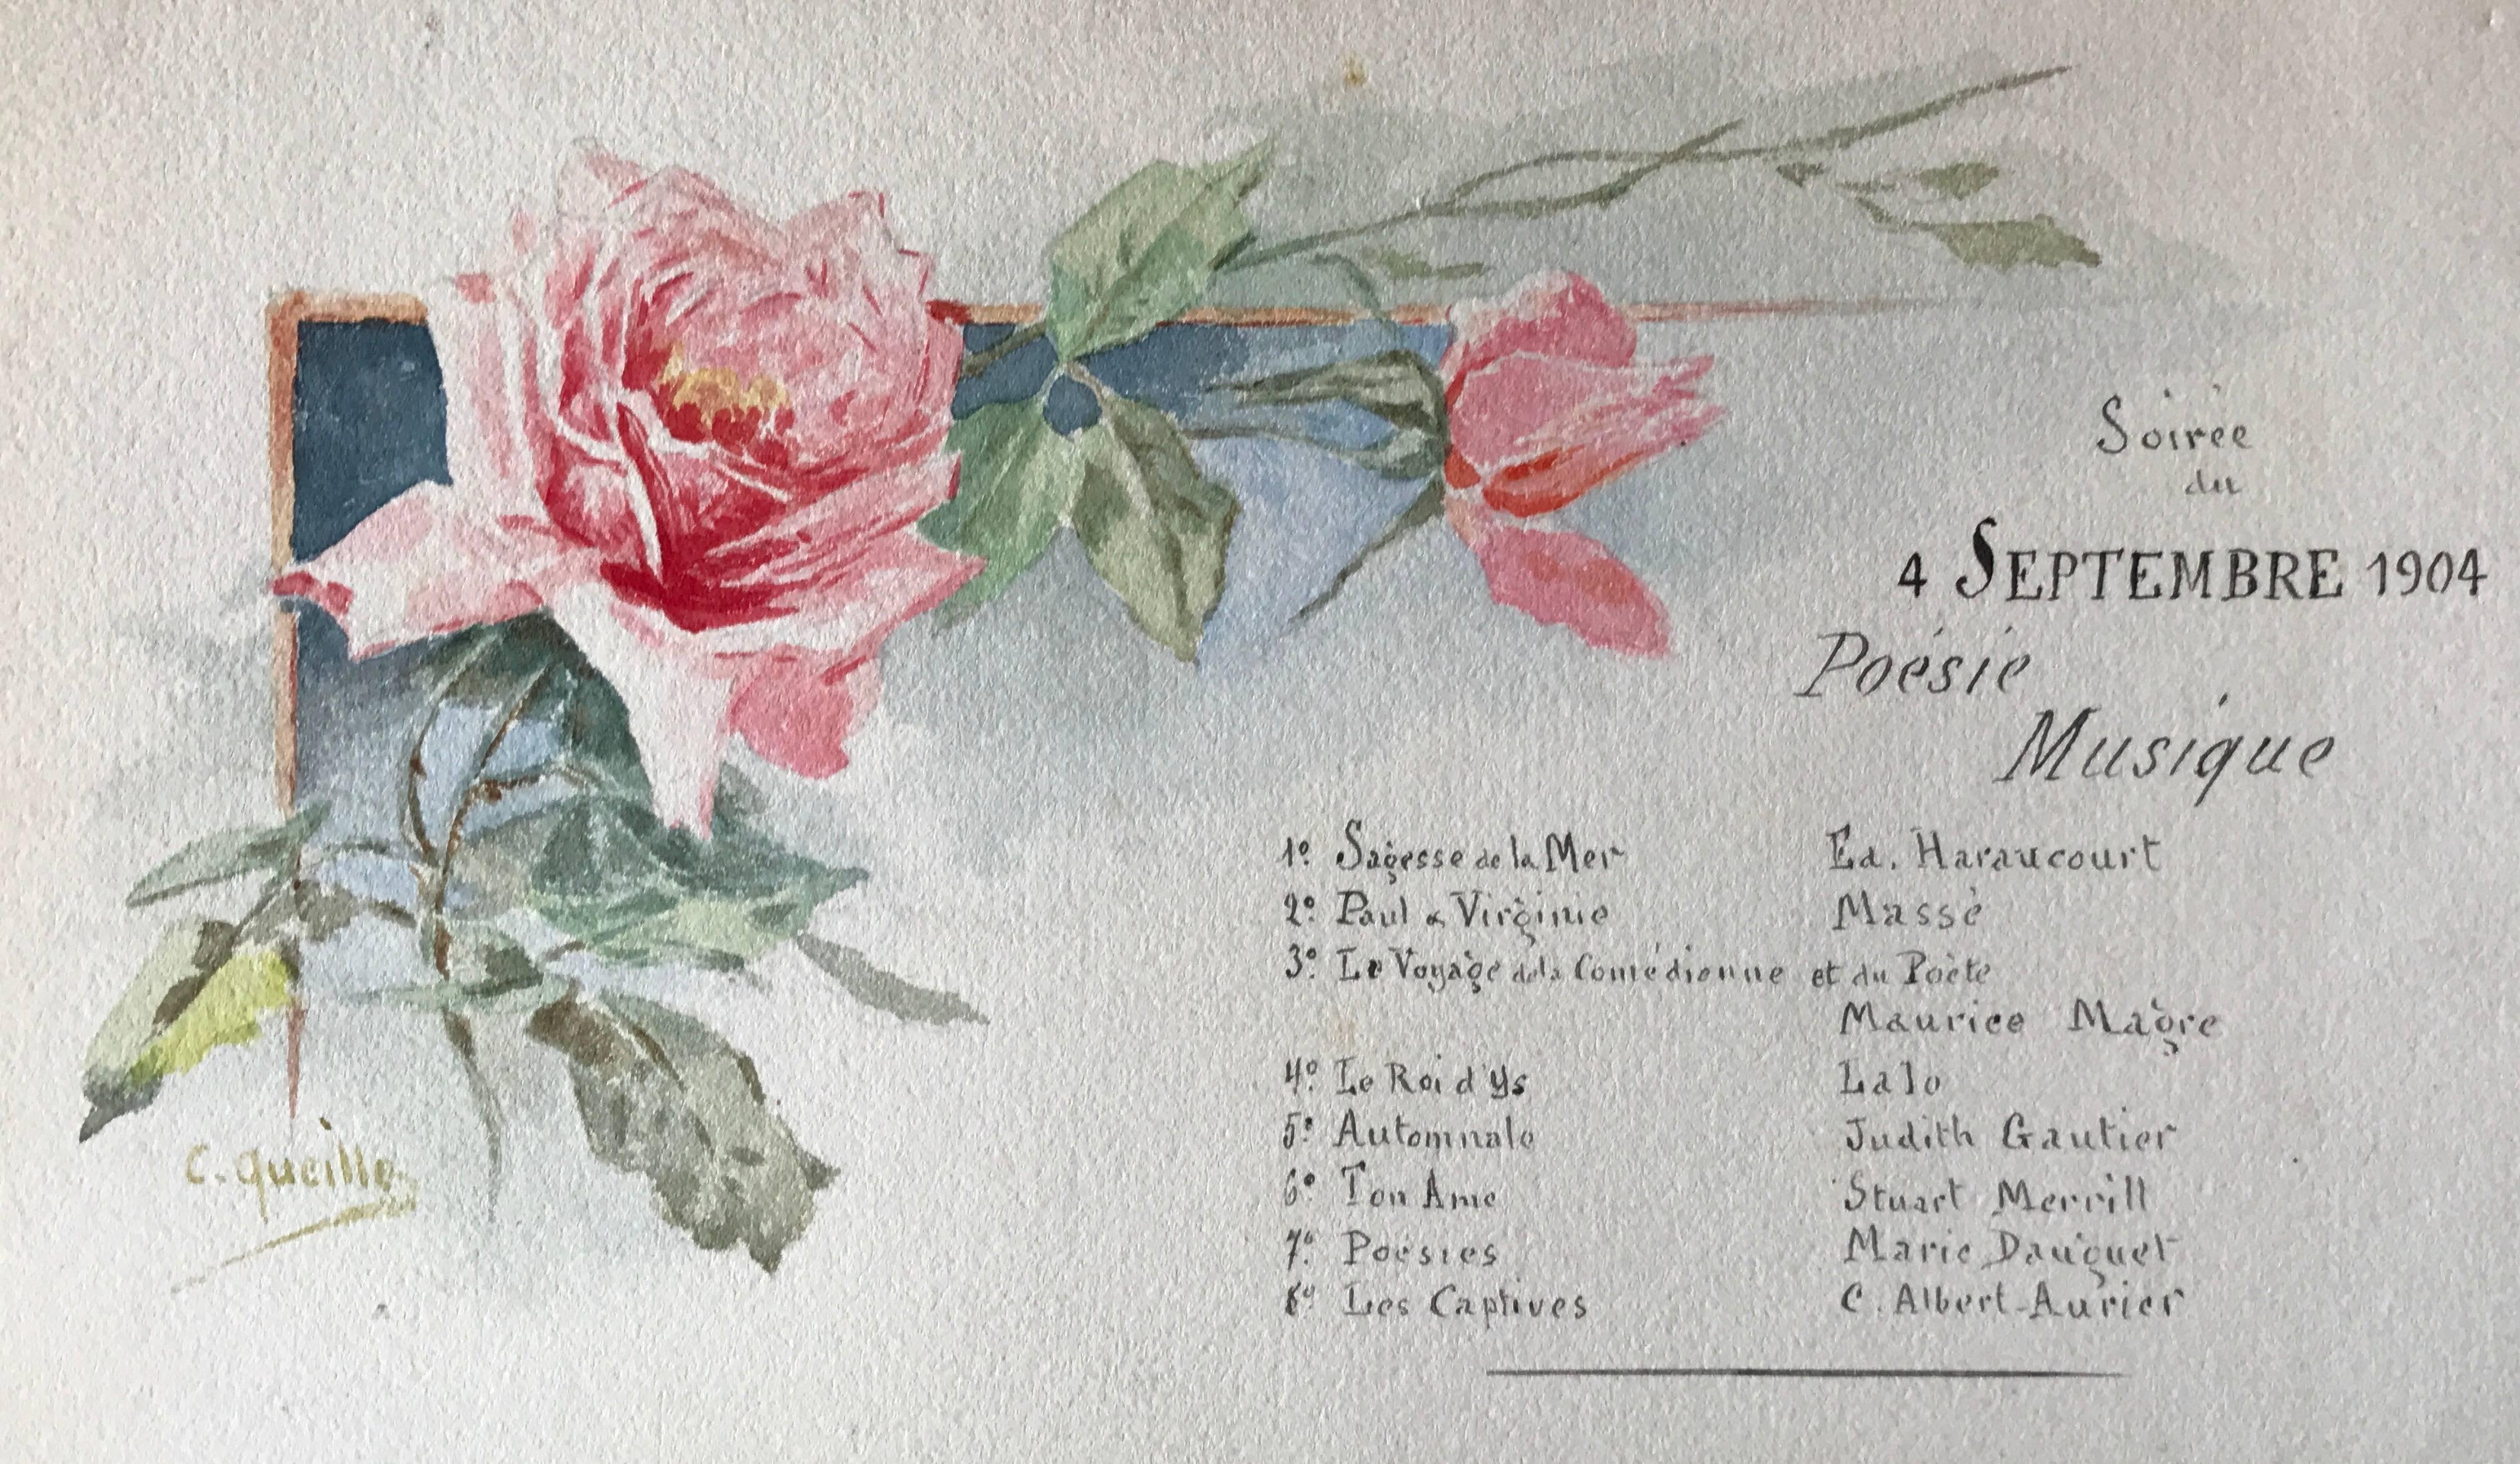 Soirée
du
4 SEPTEMBRE 1904
Poésie
Musique
1º Sagesse de la Mer Ed. Haraucourt
2º Paul & Virginie Massé
3º Le Voyage de la Comédienne et du Poète
Maurice Magre
4º Le Roi d'Ys Lalo
5º Automnale Judith Gautier
6º Ton Ame Stuart Merrill
7º Poésies Marie Dauguet
8º Les Captives C. Albert-Aurier
C. Queille